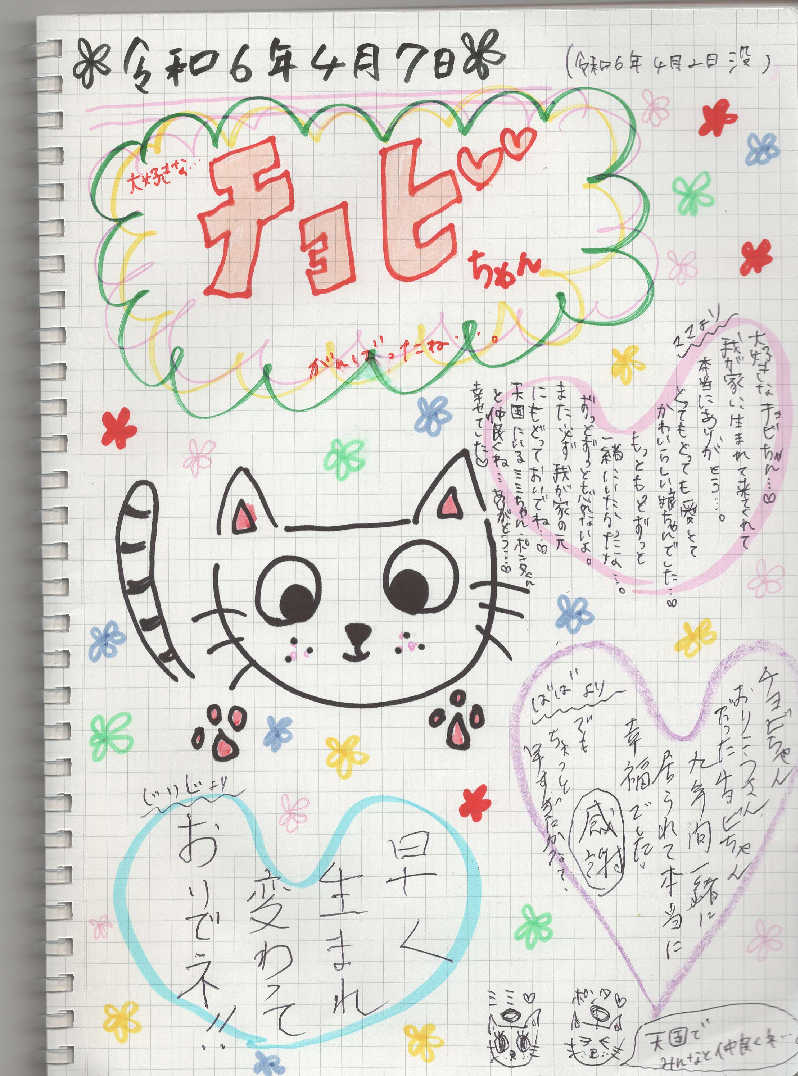 令和6年4月7日
(令和6年4月2日没)
大好きな…
チョビ
ちゃん
がんばったね…。
ママより
大好きなチョビちゃん…♡
我が家に生まれて来てくれて
本当にありがとう…。
とってもとっても愛しくて
かわいらしい娘ちゃんでした…♡
もっともっとずっと
一緒にいたかったな…。
ずっとずっと忘れないよ。
また必ず我が家の元
にもどっておいでね…♡
天国にいるミミちゃん、ポンタくん
と仲良くね…ありがとう…♡
幸せでした♡
ばぁばより
チョビちゃん
おりこうさん
だったチョビちゃん
九年間一緒に
居られて本当に
幸福でした
感謝
でも
ちょっと
早すぎたかな?
じぃじより
早く
生まれ
変わって
おいでネ!!
ミミ♡
ポンタ♡
天国で
みんなと仲良くネ…